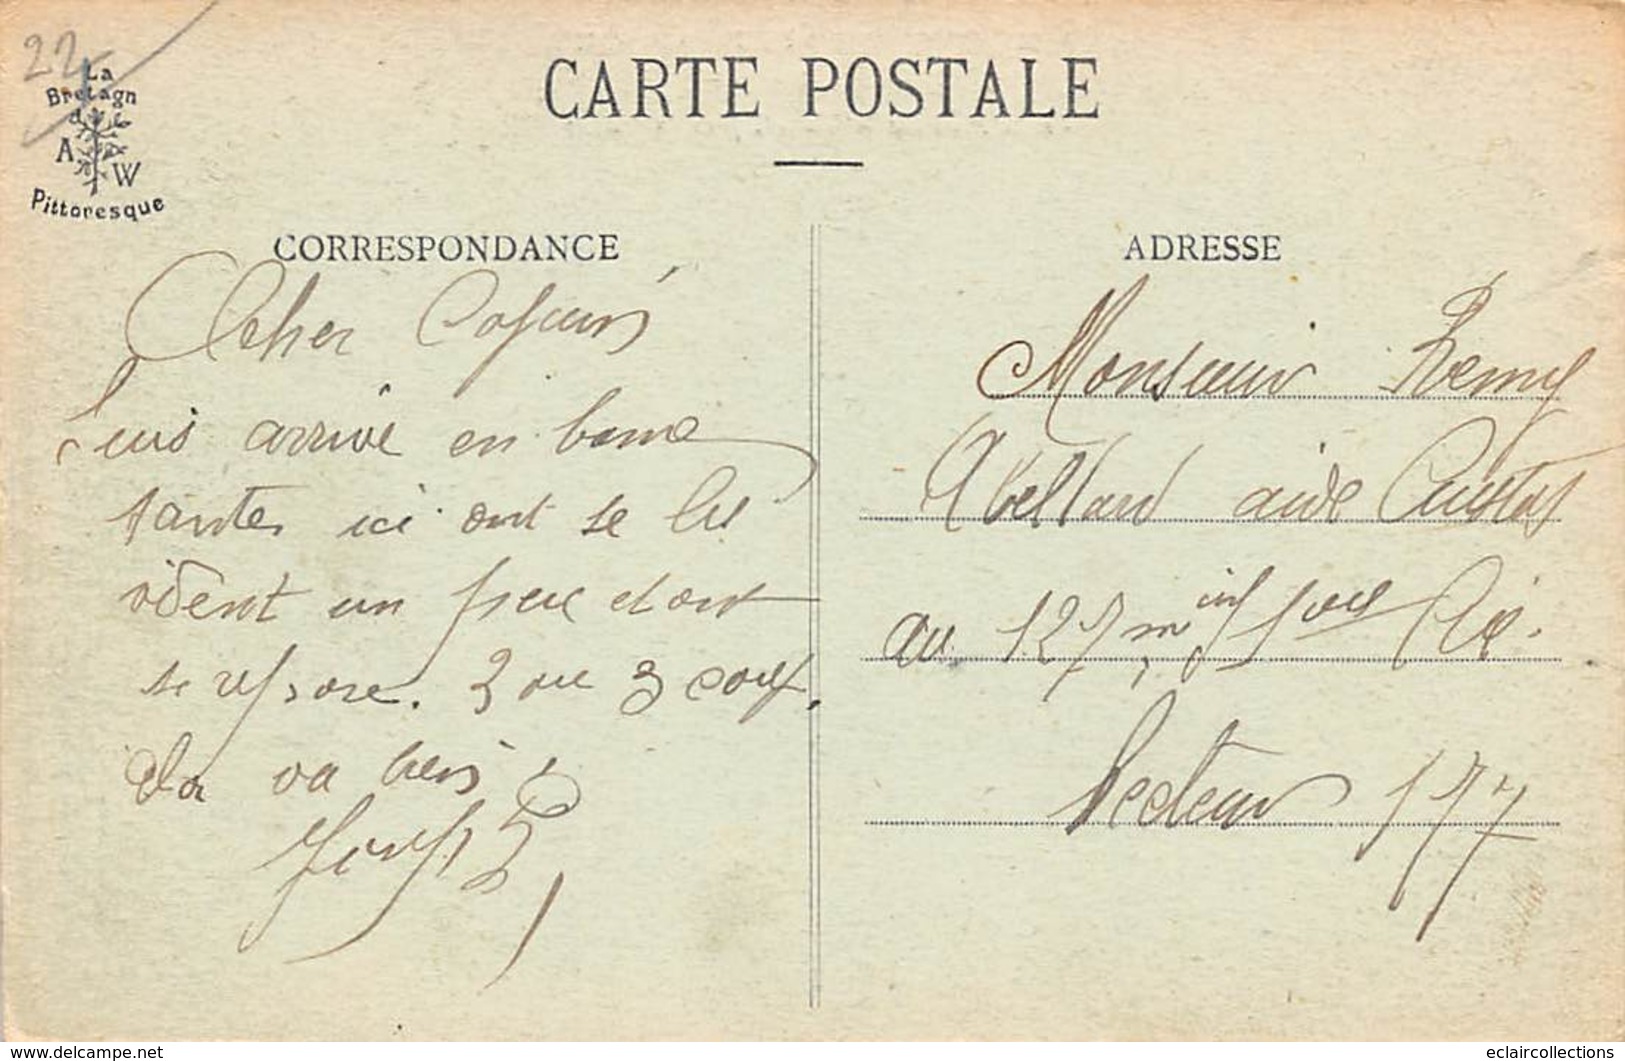 22
La
Bretagn
A W
Pittoresque
CARTE POSTALE
CORRESPONDANCE
ADRESSE
Cher
suis arrivé en bonne
santer ici ont se
vident un peu et ont
se repose. 3 ou 3 coup
va bien
Monsieur Remy
Abellard aide
au 127 m inf Cie.
Secteur 177
www.delcampe.net
eclaircollections